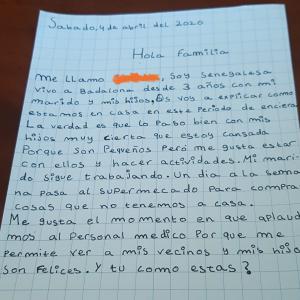 Sabado, 4 de abril del 2020
Hola Familia
Me llamo , Soy Senegalesa
vivo a Badalona desde 3 años con mi
marido y mis hijos, Os voy a explicar como
estamos en casa en este Periodo de encierr
La verdad es que lo Paso bien con mis
hijos muy cierta que estoy cansada
Porque son Pequeños Pero me gusta estar
con ellos y hacer actividades. Mi mari
do sigue trabajando. Un dia a la sema
na pasa al supermecado Para compra
cosas que no tenemos a casa.
Me gusta el momento en que aplaud
mos al Personal medico Por que me
Permite ver a mis vecinos y mis hijo
son Felices. Y tu como estas?